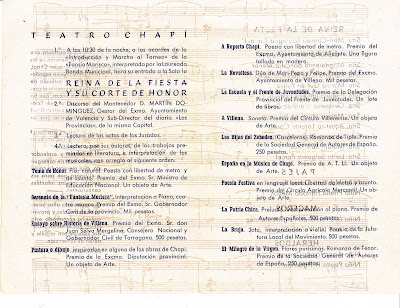 TEATRO CHAPÍ
1.º A las 10'30 de la noche, a los acordes de la
«Introducción y Marcha al Torneo» de la
«Fantasía Morisca», interpretada por la Laureada
Banda Municipal, hará su entrada a la Sala la
REINA DE LA FIESTA
Y SU CORTE DE HONOR
2.º Discurso del Mantenedor D. MARTÍN DO-
MÍNGUEZ, Gestor del Exmo. Ayuntamiento
de Valencia y Sub-Director del diario «Las
Provincias», de la misma Capital.
3.º Lectura de las actas de los Jurados.
4.º Lectura, por sus autores, de los trabajos pre-
miados en literatura, e interpretación de los
musicales, con arreglo al siguiente orden:
Tema de Honor. Flor natural. Poesía con libertad de metro y
asunto. Premio del Exmo. Sr. Ministro de
Educación Nacional. Un objeto de Arte.
Serenata de la "Fantasía Morisca". Interpretación a Piano, con
Premio del Exmo. Sr. Gobernador
Civil de la provincia. Mil pesetas.
Ensayo sobre Historia de Villena. Premio del Exmo. Sr. don
Juan Selva Mergelina, Consejero Nacional y
Gobernador Civil de Tarragona. 500 pesetas.
Pintura o dibujo, inspirados en alguna de las obras de Chapí.
Premio de la Excma. Diputación provincial.
Un objeto de Arte.
A Ruperto Chapí. Poesía con libertad de metro. Premio del
Exmo. Ayuntamiento de Alicante. Una figura
tallada en madera.
La Revoltosa. Dúo de Mari-Pepa y Felipe. Premio del Excmo.
Ayuntamiento de Villena. Mil pesetas.
La Escuela y el Frente de Juventudes. Premio de la Delegación
Provincial del Frente de Juventudes. Un lote
de libros.
A Villena. Soneto. Premio del Círculo Villenense. Un objeto
de Arte.
Las Hijas del Zebedeo. Carceleras. Romanza de Tiple. Premio
de la Sociedad General de Autores de España.
250 pesetas.
España en la Música de Chapí. Premio de A. T. Li. Un objeto
de Arte.
Poesía Festiva en lenguaje local. Libertad de metro y asunto.
Premio del Círculo Agrícola Mercantil. Un objeto
de Arte.
La Patria Chica. Preludio. al piano. Premio de
Autores Españoles. 500 pesetas.
La Bruja. Jota. Interpretación a violín. Premio de la Jefa-
tura Local del Movimiento. 500 pesetas.
El Milagro de la Virgen. Flores purísimas. Romanza de Tenor.
Premio de la Sociedad General de Autores
de España. 250 pesetas.